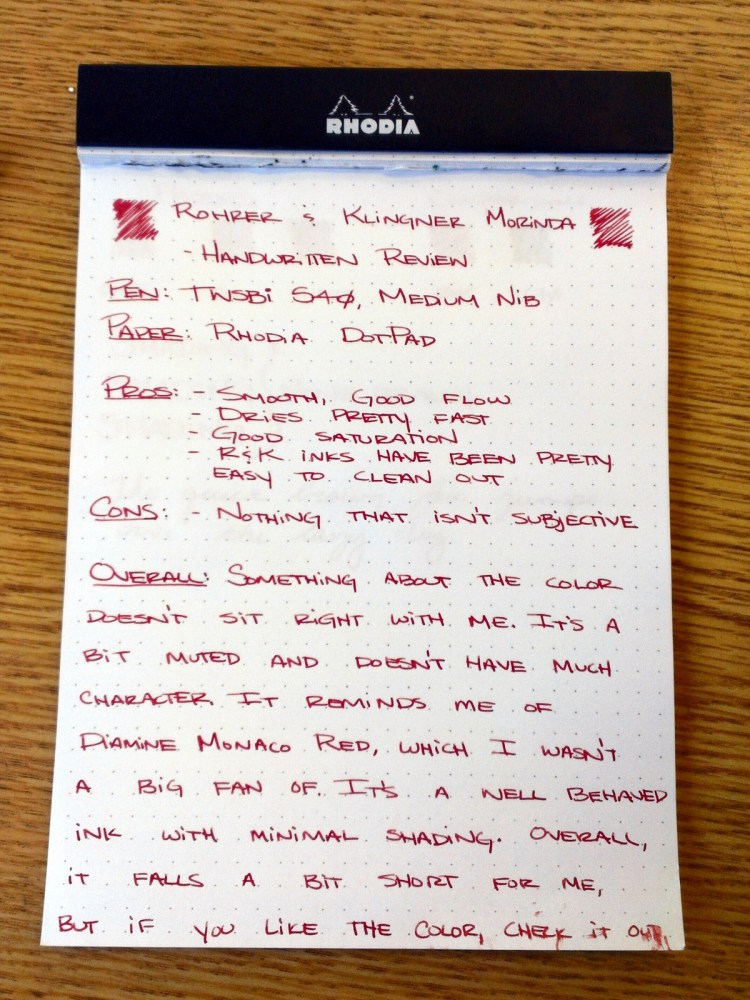 RHODIA
ROHRER & KLINGNER MORINDA
- HANDWRITTEN REVIEW
PEN: TWSBI 540, MEDIUM NIB
PAPER: RHODIA DOTPAD
PROS: - SMOOTH, GOOD FLOW
- DRIES PRETTY FAST
- GOOD SATURATION
- R&K INKS HAVE BEEN PRETTY
EASY TO CLEAN OUT
CONS: - NOTHING THAT ISN'T SUBJECTIVE
OVERALL: SOMETHING ABOUT THE COLOR
DOESN'T SIT RIGHT WITH ME. IT'S A
BIT MUTED AND DOESN'T HAVE MUCH
CHARACTER. IT REMINDS ME OF
DIAMINE MONACO RED, WHICH I WASN'T
A BIG FAN OF. IT'S A WELL BEHAVED
INK WITH MINIMAL SHADING. OVERALL,
IT FALLS A BIT SHORT FOR ME,
BUT IF YOU LIKE THE COLOR, CHECK IT OUT.